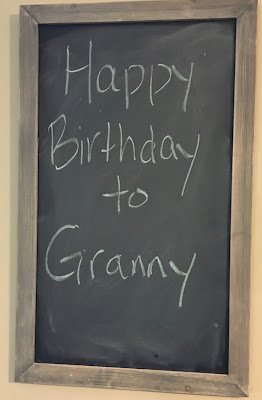 Happy
Birthday
to
Granny